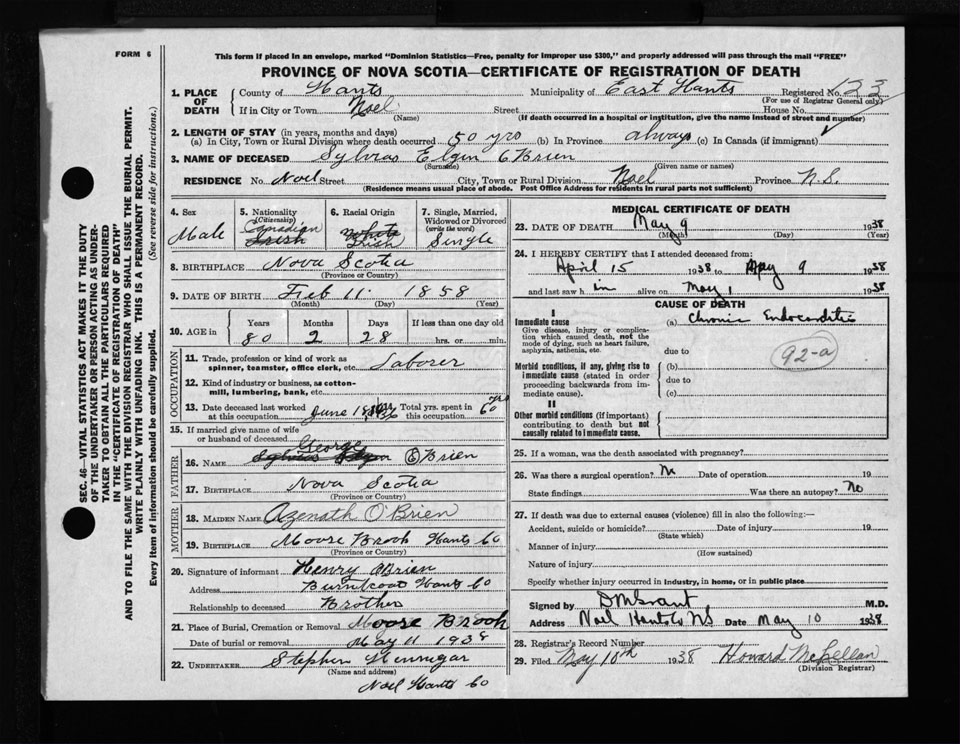 FORM 6
This form if placed in an envelope, marked "Dominion Statistics—Free, penalty for improper use $300," and properly addressed will pass through the mail "FREE"
PROVINCE OF NOVA SCOTIA—CERTIFICATE OF REGISTRATION OF DEATH
SEC. 46—VITAL STATISTICS ACT MAKES IT THE DUTY
OF THE UNDERTAKER OR PERSON ACTING AS UNDER-
TAKER TO OBTAIN ALL THE PARTICULARS REQUIRED
IN THE "CERTIFICATE OF REGISTRATION OF DEATH"
AND TO FILE THE SAME WITH THE DIVISION REGISTRAR WHO SHALL ISSUE THE BURIAL PERMIT.
WRITE PLAINLY WITH UNFADING INK. THIS IS A PERMANENT RECORD.
Every item of information should be carefully supplied. (See reverse side for instructions.)
1. PLACE OF DEATH County of Hants Municipality of East Hants Registered No. 123
(For use of Registrar General only)
If in City or Town Noel Street House No.
(Name) (If death occurred in a hospital or institution, give the name instead of street and number)
2. LENGTH OF STAY (in years, months and days)
(a) In City, Town or Rural Division where death occurred 50 yrs (b) In Province always (c) In Canada (if immigrant)
3. NAME OF DECEASED Sylvias Elgin O'Brien
(Surname) (Given name or names)
RESIDENCE No. Noel Street City, Town or Rural Division Noel Province N.S.
(Residence means usual place of abode. Post Office Address for residents in rural parts not sufficient)
4. Sex Male
5. Nationality (Citizenship) Canadian Irish
6. Racial Origin White Irish
7. Single, Married, Widowed or Divorced (write the word) Single
8. BIRTHPLACE Nova Scotia
(Province or Country)
9. DATE OF BIRTH Feb 11 1858
(Month) (Day) (Year)
10. AGE in Years 80 Months 2 Days 28 If less than one day old hrs. or min.
OCCUPATION
11. Trade, profession or kind of work as spinner, teamster, office clerk, etc. Laborer
12. Kind of industry or business, as cotton-mill, lumbering, bank, etc.
13. Date deceased last worked at this occupation June Total yrs. spent in this occupation 60 yrs
15. If married give name of wife or husband of deceased
FATHER
16. NAME George Sylvias Elgin O'Brien
17. BIRTHPLACE Nova Scotia
(Province or Country)
MOTHER
18. MAIDEN NAME Azenath O'Brien
19. BIRTHPLACE Moose Brook Hants Co
(Province or Country)
20. Signature of informant Henry O'Brien
Address Burntcoat Hants Co
Relationship to deceased Brother
21. Place of Burial, Cremation or Removal Moose Brook
Date of burial or removal May 11 1938
22. UNDERTAKER Stephen Hennigar
(Name and address)
Noel Hants Co
MEDICAL CERTIFICATE OF DEATH
23. DATE OF DEATH May 9 1938
(Month) (Day) (Year)
24. I HEREBY CERTIFY that I attended deceased from:
April 15 1938 to May 9 1938
and last saw h im alive on May 1 1938
CAUSE OF DEATH
I
Immediate cause (a) Chronic Endocarditis
Give disease, injury or complication which caused death, not the mode of dying, such as heart failure, asphyxia, asthenia, etc.
due to
92-a
Morbid conditions, if any, giving rise to immediate cause (stated in order proceeding backwards from immediate cause). (b)
due to
(c)
II
Other morbid conditions (if important) contributing to death but not causally related to immediate cause.
25. If a woman, was the death associated with pregnancy?
26. Was there a surgical operation? No Date of operation 19
State findings Was there an autopsy? No
27. If death was due to external causes (violence) fill in also the following:—
Accident, suicide or homicide? Date of injury 19
(State which)
Manner of injury
(How sustained)
Nature of injury
Specify whether injury occurred in industry, in home, or in public place
Signed by D M Grant M.D.
Address Noel Hants Co NS Date May 10 1938
28. Registrar's Record Number
29. Filed May 10th 1938 Howard McLellan
(Division Registrar)